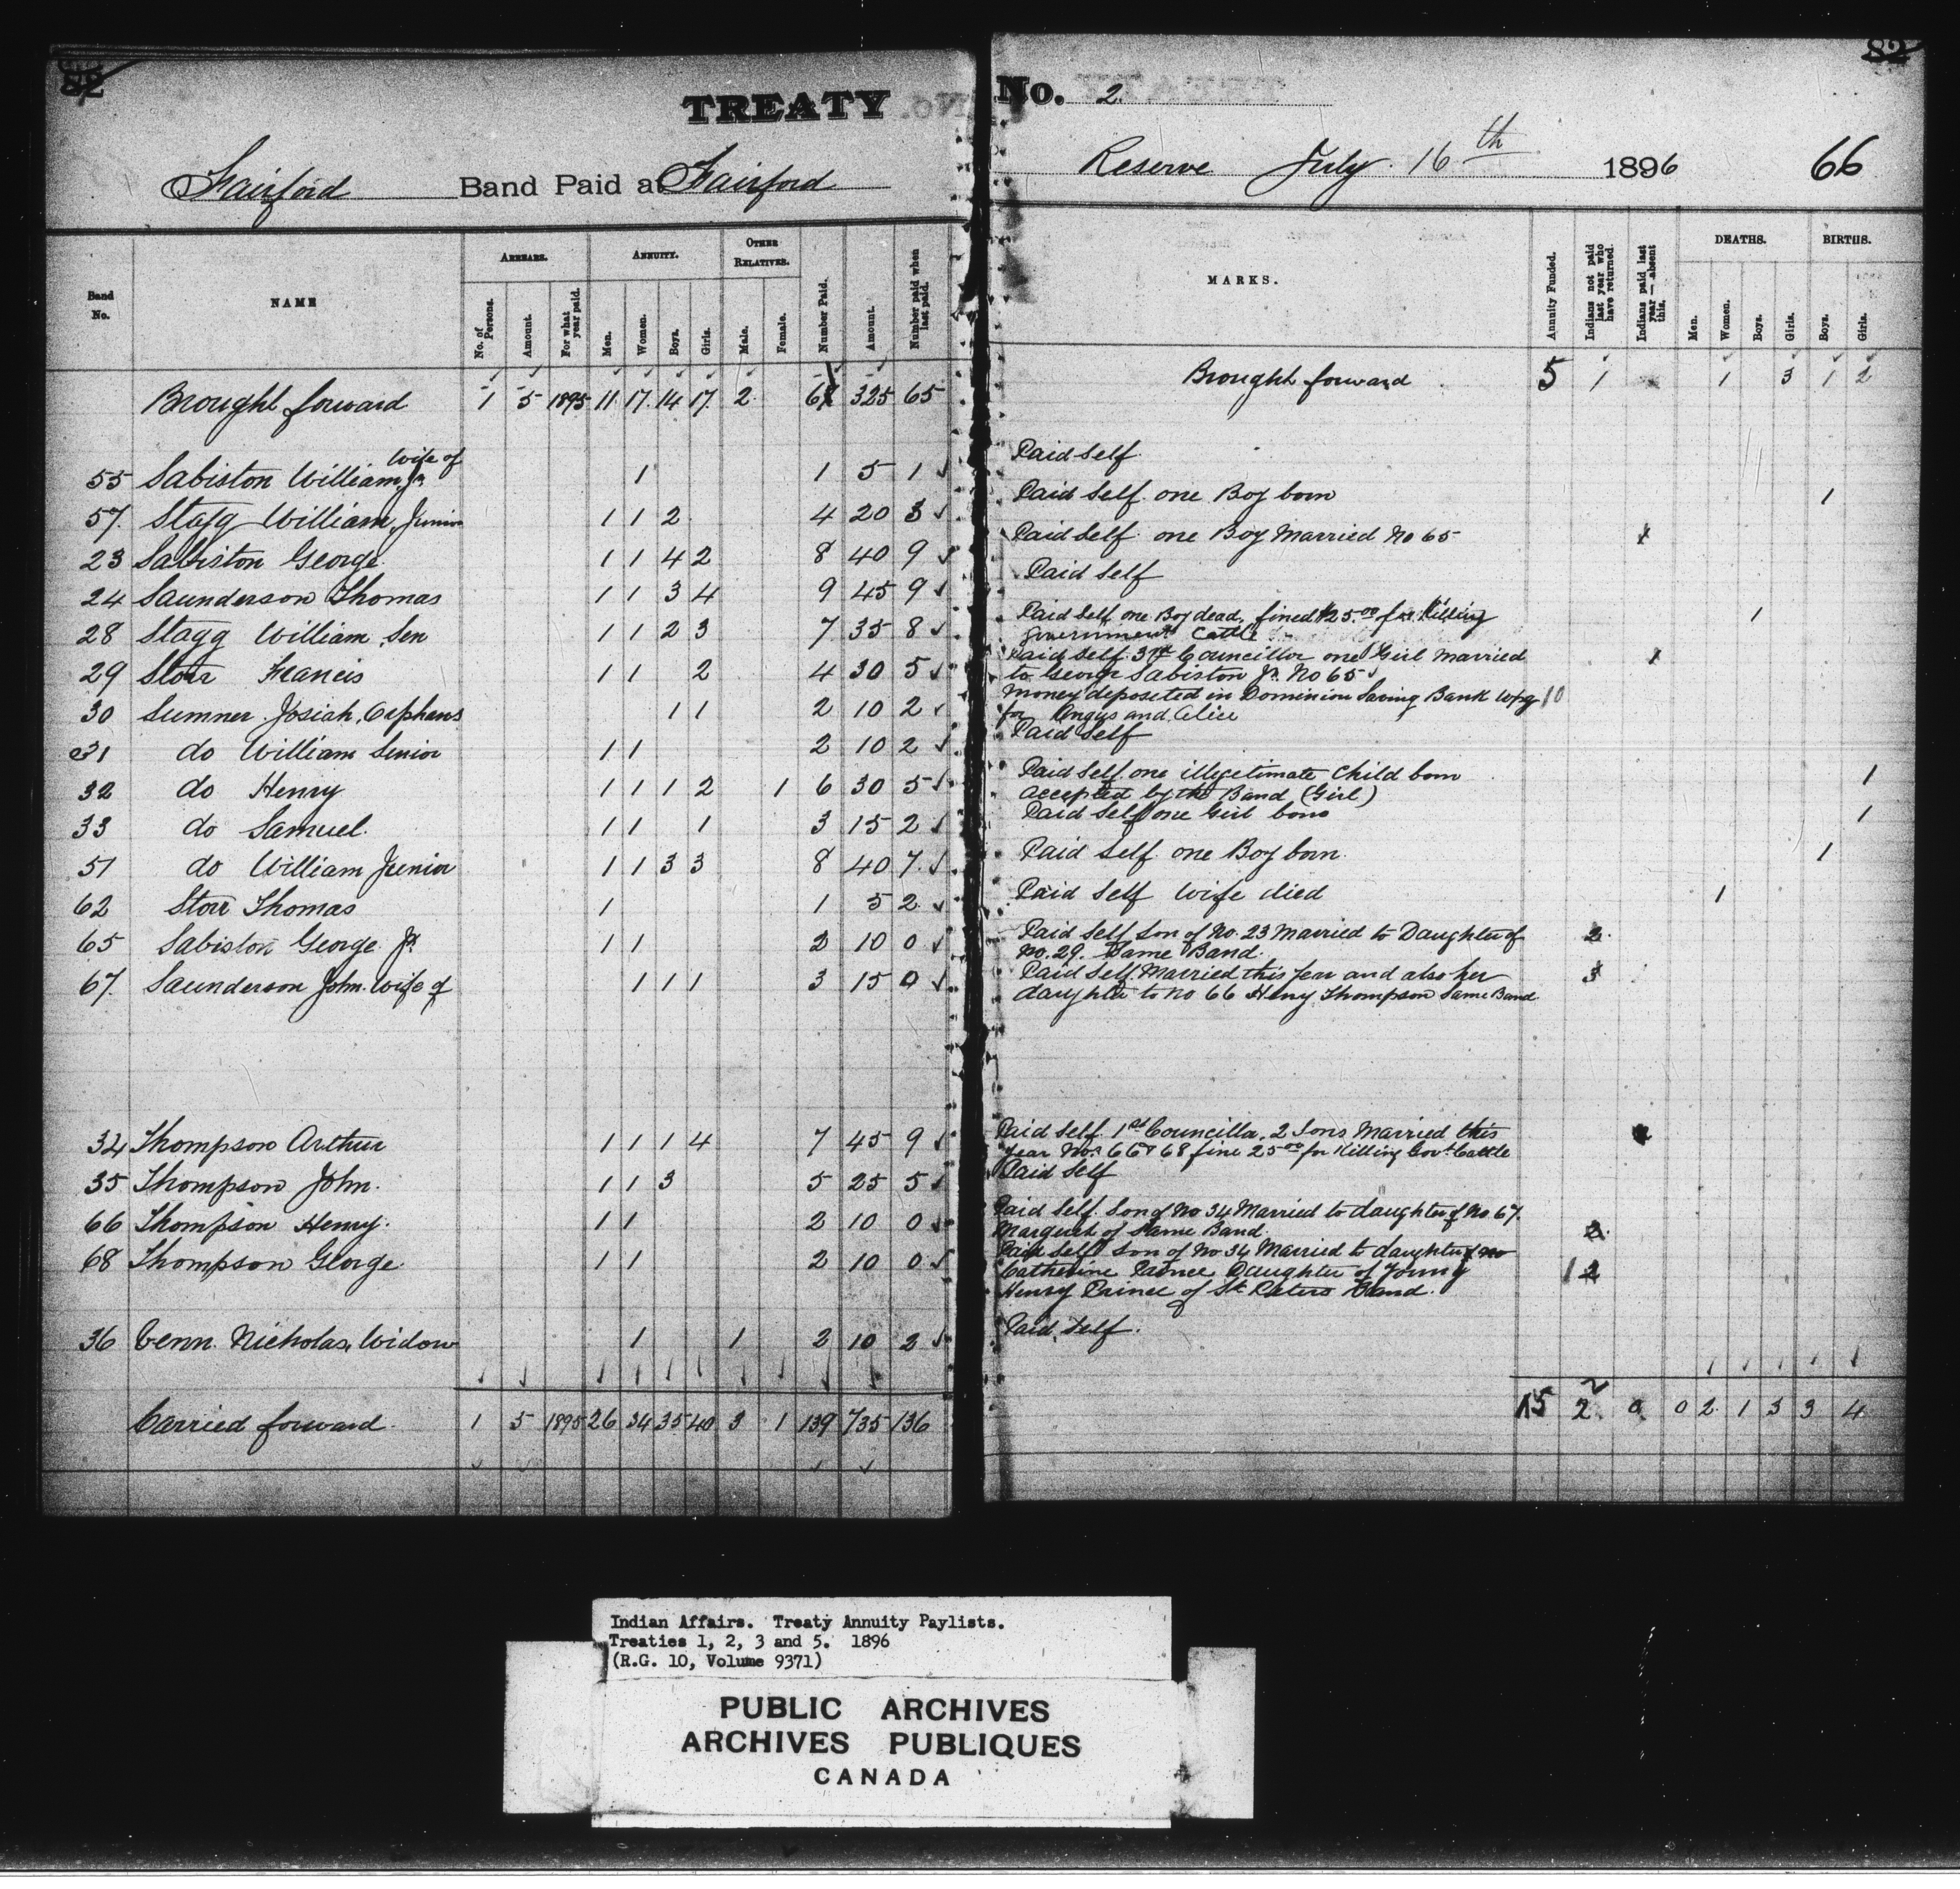 82
82
TREATY No. 2
Fairford Band Paid at Fairford Reserve July 16th 1896 66
Band No.
NAME
ARREARS.
No. of Persons.
Amount.
For what year paid.
ANNUITY.
Men.
Women.
Boys.
Girls.
OTHER RELATIVES.
Male.
Female.
Number Paid.
Amount.
Number paid when last paid.
MARKS.
Annuity Funded.
Indians not paid last year who have returned.
Indians paid last year — absent this.
DEATHS.
Men.
Women.
Boys.
Girls.
BIRTHS.
Boys.
Girls.
Brought forward 1 5 1895 11 17 14 17 2 325 65 Brought forward 5 1 1 3 1 2
55 Sabiston William Jr. wife of 1 1 5 1 Paid Self
57 Stagg William, Junior 1 1 2 4 20 3 Paid Self. one Boy born 1
23 Sabiston George 1 1 4 2 8 40 9 Paid Self. one Boy Married No 65 1
24 Saunderson Thomas 1 1 3 4 9 45 9 Paid Self
28 Stagg William, Sen 1 1 2 3 7 35 8 Paid Self one Boy dead, fined $25.00 for Killing 1
Government Cattle
29 Storr Francis 1 1 2 4 30 5 Paid Self. 3rd Councillor one Girl Married 1
to George Sabiston Jr. No 65
30 Sumner Josiah, Orphans 1 1 2 10 2 Money deposited in Dominion Saving Bank Wpg 10
for Angus and Alice
31 do William Senior 1 1 2 10 2 Paid Self
32 do Henry 1 1 1 2 1 6 30 5 Paid Self. one illegetimate Child born 1
accepted by the Band (Girl)
33 do Samuel 1 1 1 3 15 2 Paid Self one Girl born 1
51 do William Junior 1 1 3 3 8 40 7 Paid Self. one Boy born 1
62 Storr Thomas 1 1 5 2 Paid Self Wife died 1
65 Sabiston George Jr. 1 1 2 10 0 Paid Self Son of No. 23 Married to Daughter of 2
No. 29. Same Band.
67 Saunderson John. Wife of 1 1 1 3 15 0 Paid Self. Married this year and also her 3
daughter to No 66 Heny Thompson Same Band
34 Thompson Arthur 1 1 1 4 7 45 9 Paid Self. 1st Councilla. 2 Sons Married this
year Nos 66 & 68 fine 25.00 for Killing Govt. Cattle
35 Thompson John. 1 1 3 5 25 5 Paid Self
66 Thompson Henry. 1 1 2 10 0 Paid Self. Son of No 34 Married to daughter of No 67.
Margaret of Same Band 2
68 Thompson George 1 1 2 10 0 Paid Self Son of No 34 Married to daughter of no
Catherine Prince Daughter of Young 1 2
Henry Prince of St. Peters Band.
36 Venn. Nicholas, Widow 1 1 2 10 2 Paid Self.
Carried forward 1 5 1895 26 34 35 40 3 1 139 735 136 15 2 0 0 2 1 3 3 4
Indian Affairs. Treaty Annuity Paylists.
Treaties 1, 2, 3 and 5. 1896
(R.G. 10, Volume 9371)
PUBLIC ARCHIVES
ARCHIVES PUBLIQUES
CANADA